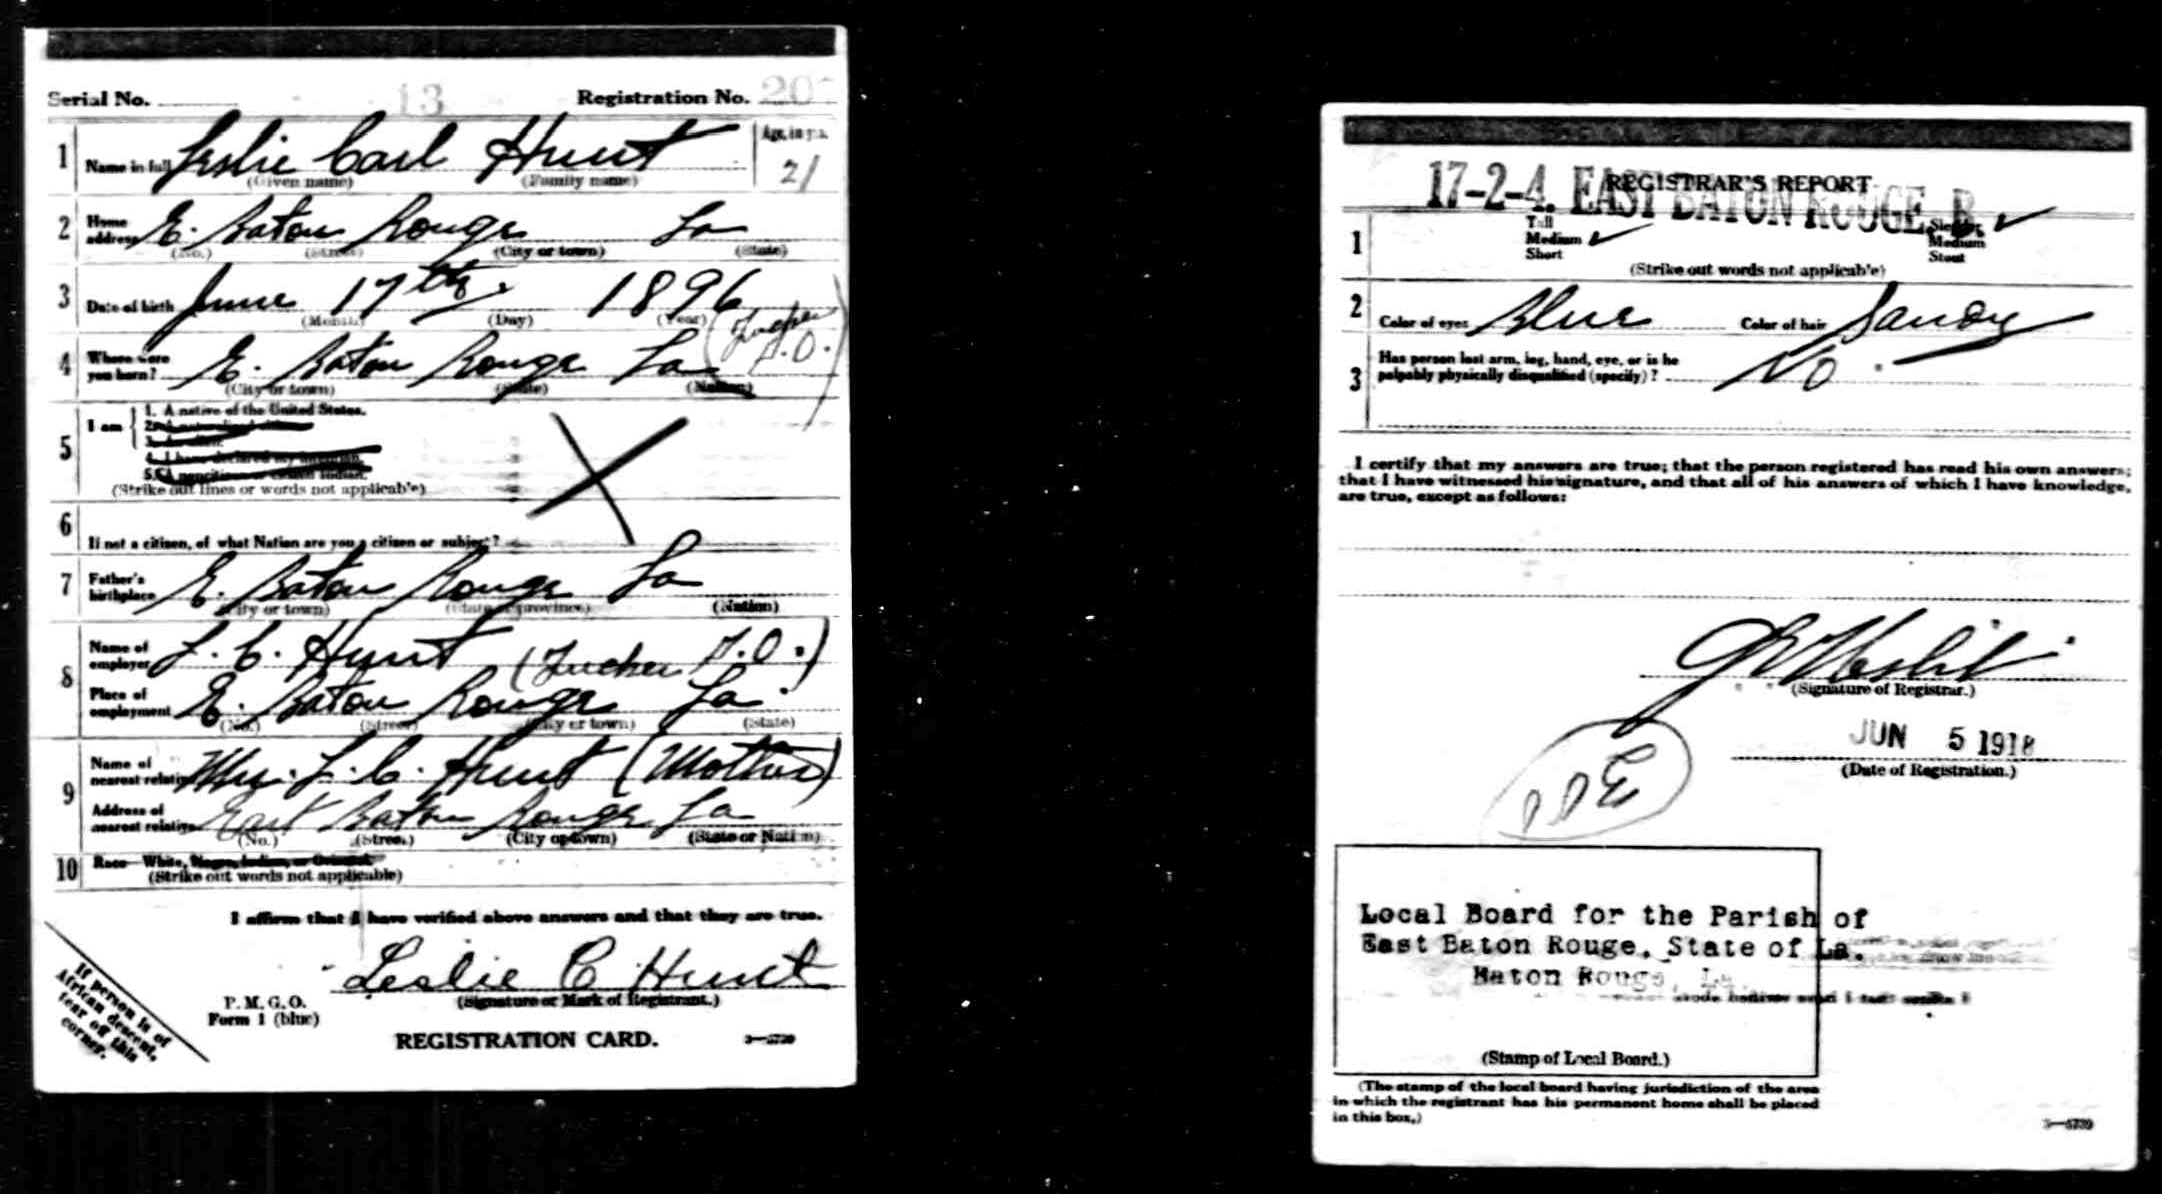 Serial No. 13 Registration No. 20
1 Name in full Leslie Carl Hunt Age, in yrs. 21
(Given name) (Family name)
2 Home address E. Baton Rouge La
(No.) (Street) (City or town) (State)
3 Date of birth June 17th 1896
(Month) (Day) (Year)
4 Where were you born? E. Baton Rouge La
(City or town) (State) (Nation)
5 I am
1. A native of the United States.
2. A naturalized citizen
3. An alien.
4. I have declared my intention.
5.
(Strike out lines or words not applicable)
6 If not a citizen, of what Nation are you a citizen or subject?
7 Father's birthplace E. Baton Rouge La
(City or town) (State or province) (Nation)
8 Name of employer L. C. Hunt
Place of employment E. Baton Rouge La
(No.) (Street) (City or town) (State)
9 Name of nearest relative Mrs. L. C. Hunt (Mother)
Address of nearest relative East Baton Rouge La
(No.) (Street) (City or town) (State or Nation)
10 Race—White, Negro, Indian, or Oriental
(Strike out words not applicable)
I affirm that I have verified above answers and that they are true.
Leslie C Hunt
(Signature or Mark of Registrant.)
P. M. G. O.
Form 1 (blue)
REGISTRATION CARD.
If person is of
African descent,
tear off this
corner.
REGISTRAR'S REPORT
17-2-4. EAST BATON ROUGE, B
1 Tall Slender
Medium ✓ Medium
Short Stout
(Strike out words not applicable)
2 Color of eyes Blue Color of hair Sandy
3 Has person lost arm, leg, hand, eye, or is he
palpably physically disqualified (specify)? No
I certify that my answers are true; that the person registered has read his own answers;
that I have witnessed his signature, and that all of his answers of which I have knowledge,
are true, except as follows:
(Signature of Registrar.)
JUN 5 1918
(Date of Registration.)
Local Board for the Parish of
East Baton Rouge, State of La.
Baton Rouge, La.
(Stamp of Local Board.)
(The stamp of the local board having jurisdiction of the area
in which the registrant has his permanent home shall be placed
in this box.)
3—5739